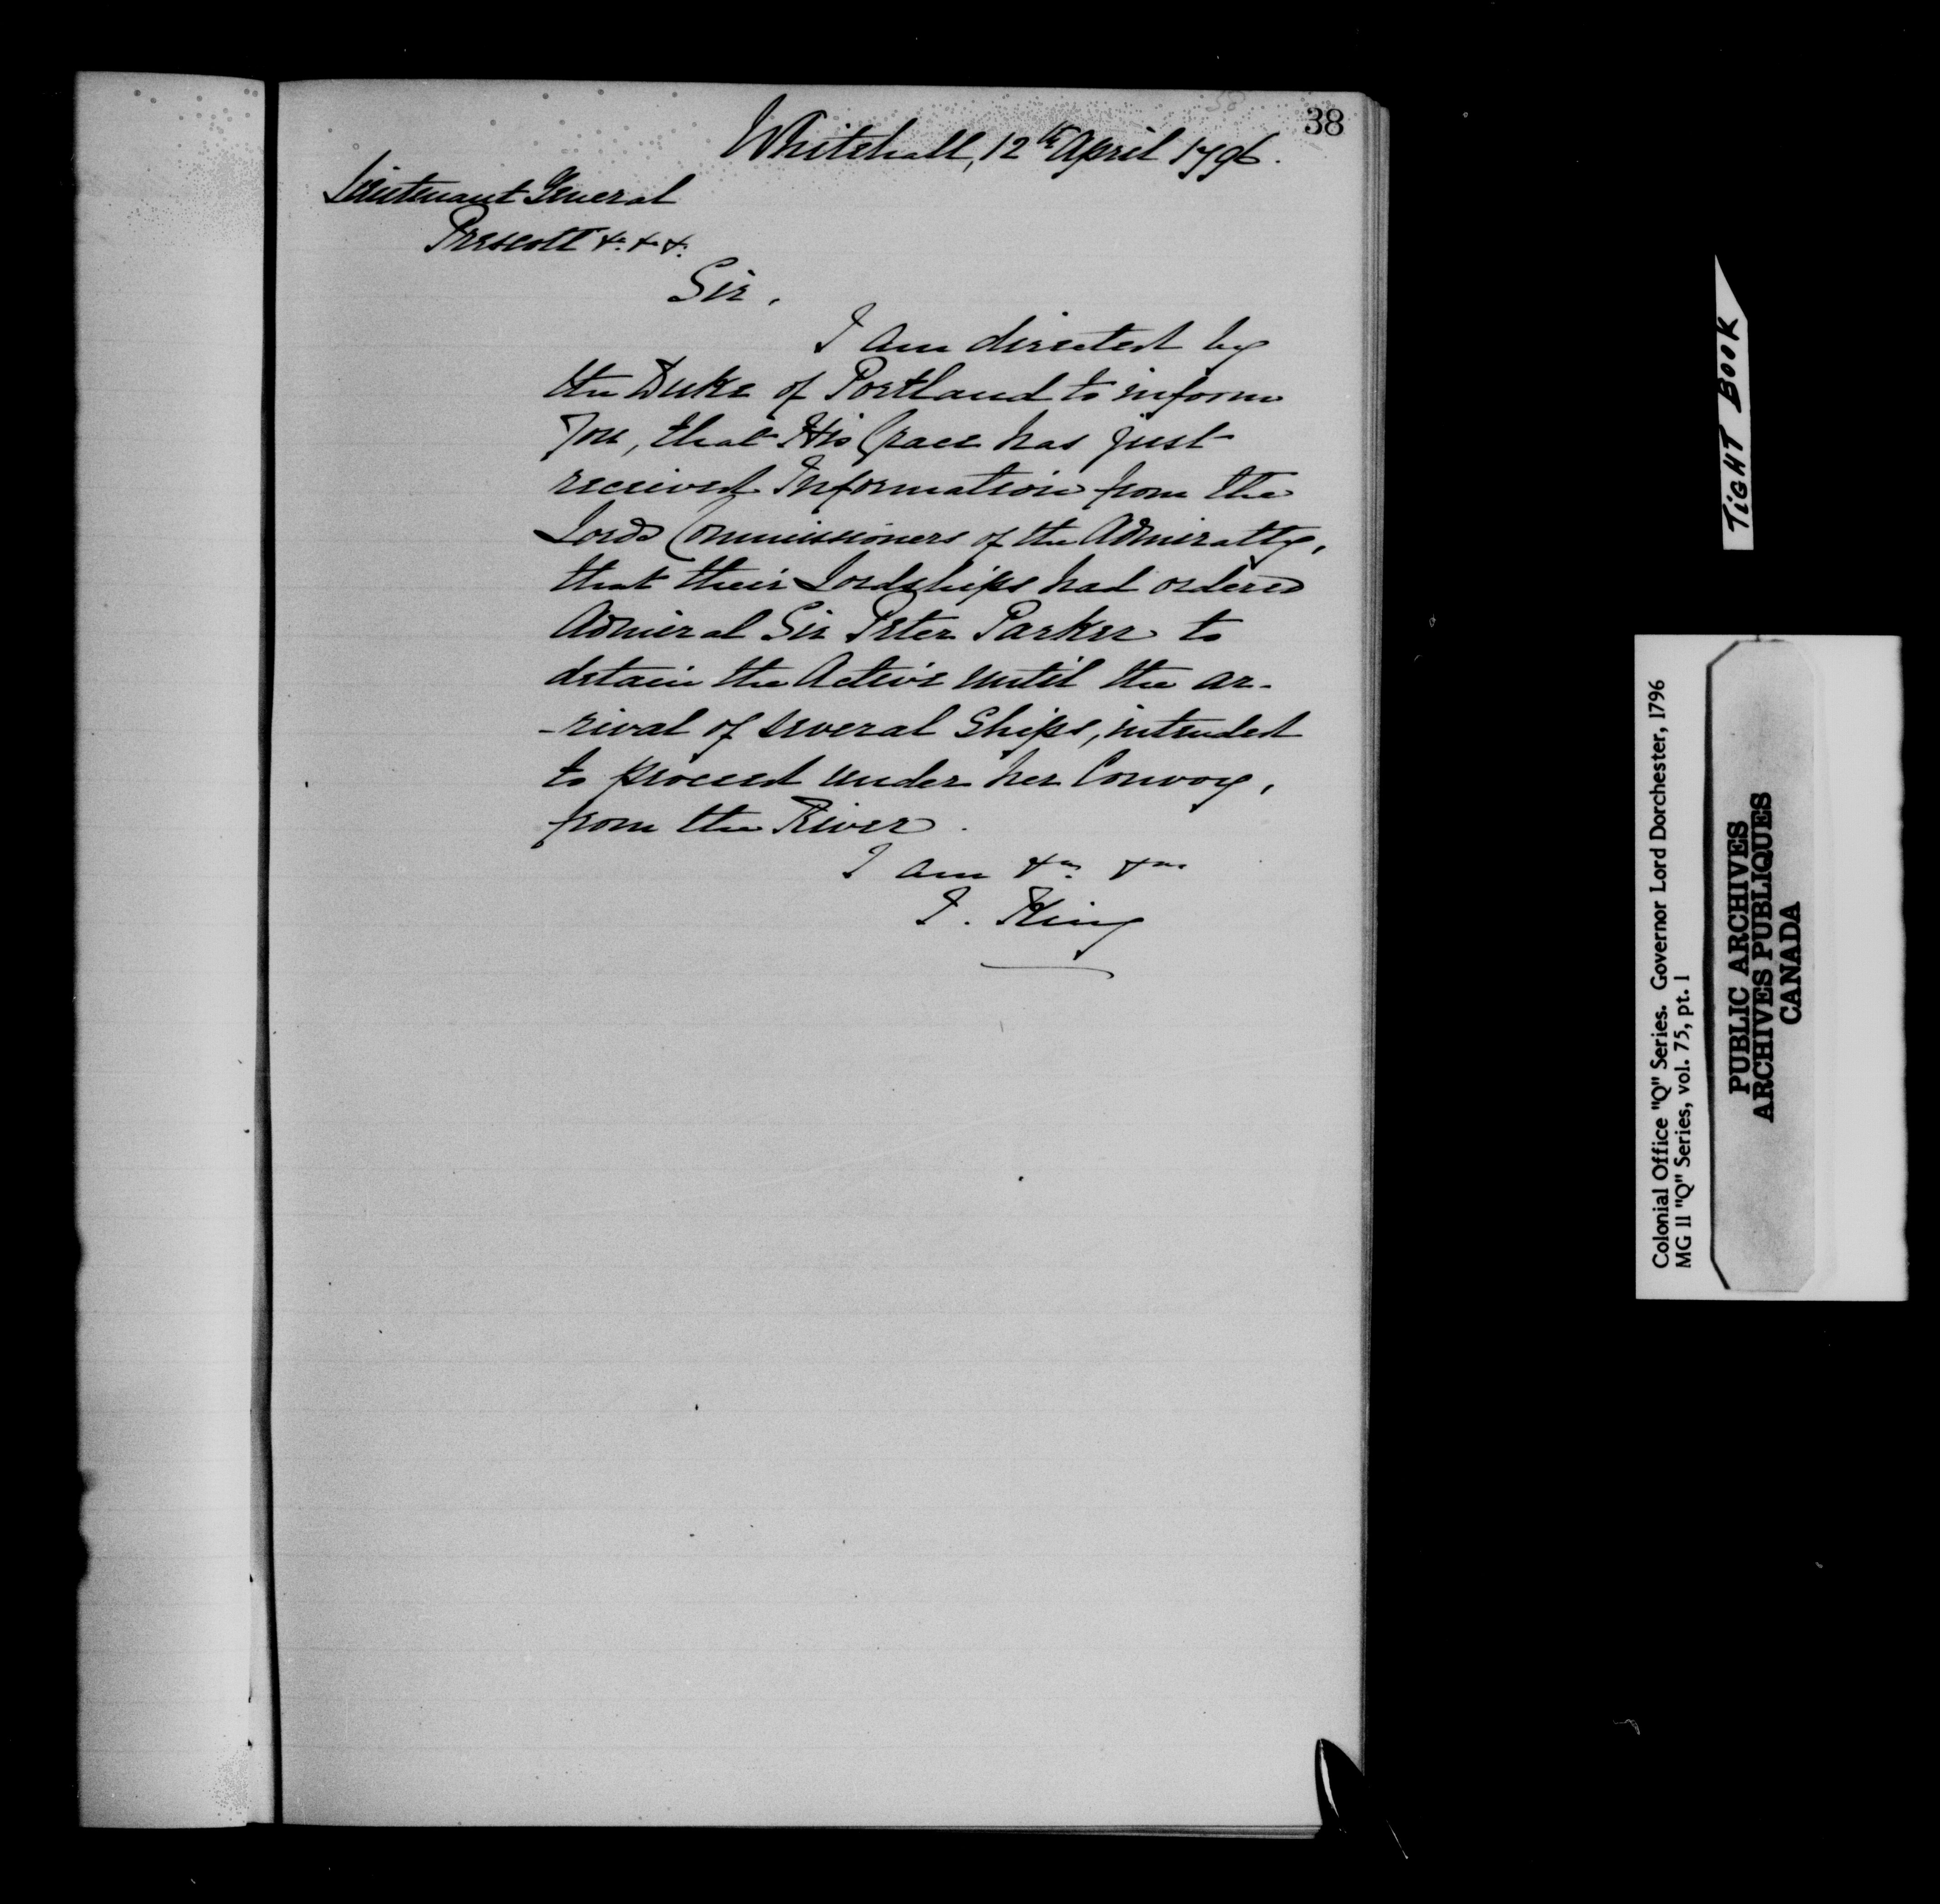 38
Whitehall, 12th April 1796.
Lieutenant General
Prescott &c. &c. &c.
Sir,
I am directed by
the Duke of Portland to inform
You, that His Grace has just
received Information from the
Lords Commissioners of the Admiralty,
that their Lordships had ordered
Admiral Sir Peter Parker to
detain the Active until the ar-
-rival of several Ships, intended
to proceed under her Convoy,
from the River.
I am &c. &c.
J. King
TIGHT BOOK
Colonial Office "Q" Series. Governor Lord Dorchester, 1796
MG 11 "Q" Series, vol. 75, pt. 1
PUBLIC ARCHIVES
ARCHIVES PUBLIQUES
CANADA